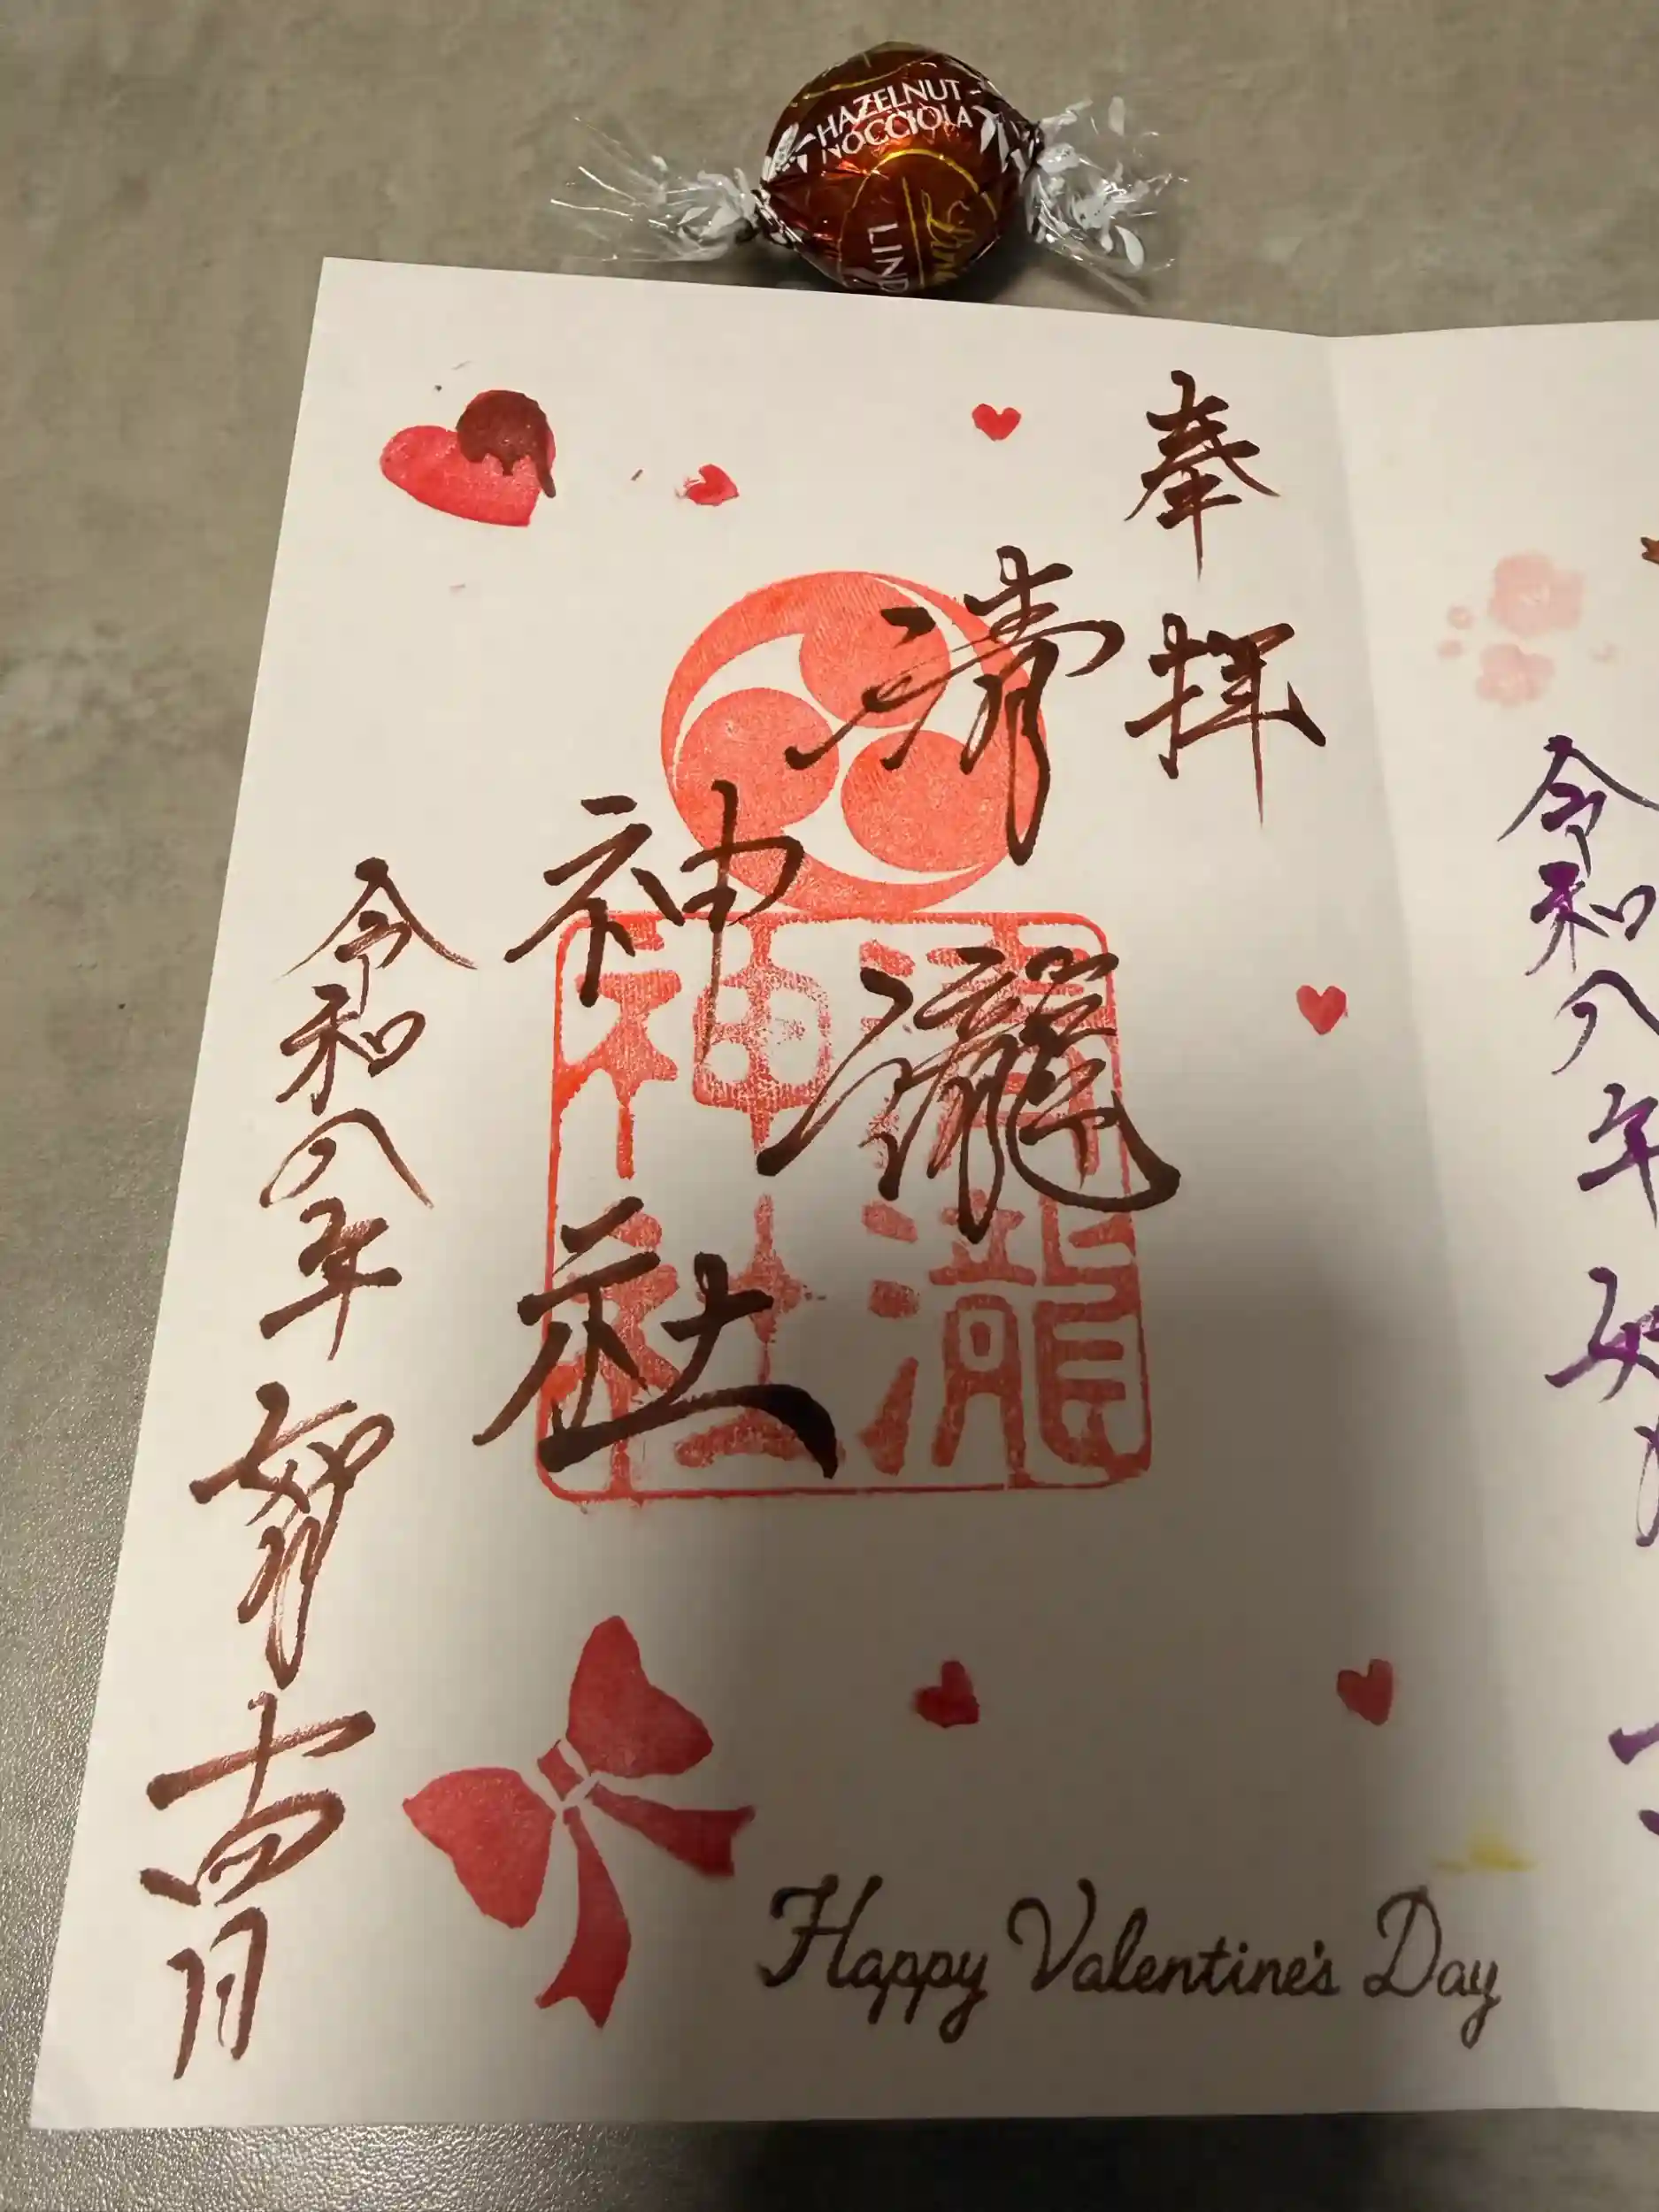 HAZELNUT
NOCCIOLA
LIND
奉拝
清瀧
神社
清瀧
神社
令和八年
如月
十四日
Happy Valentine's Day
令和八年
如月